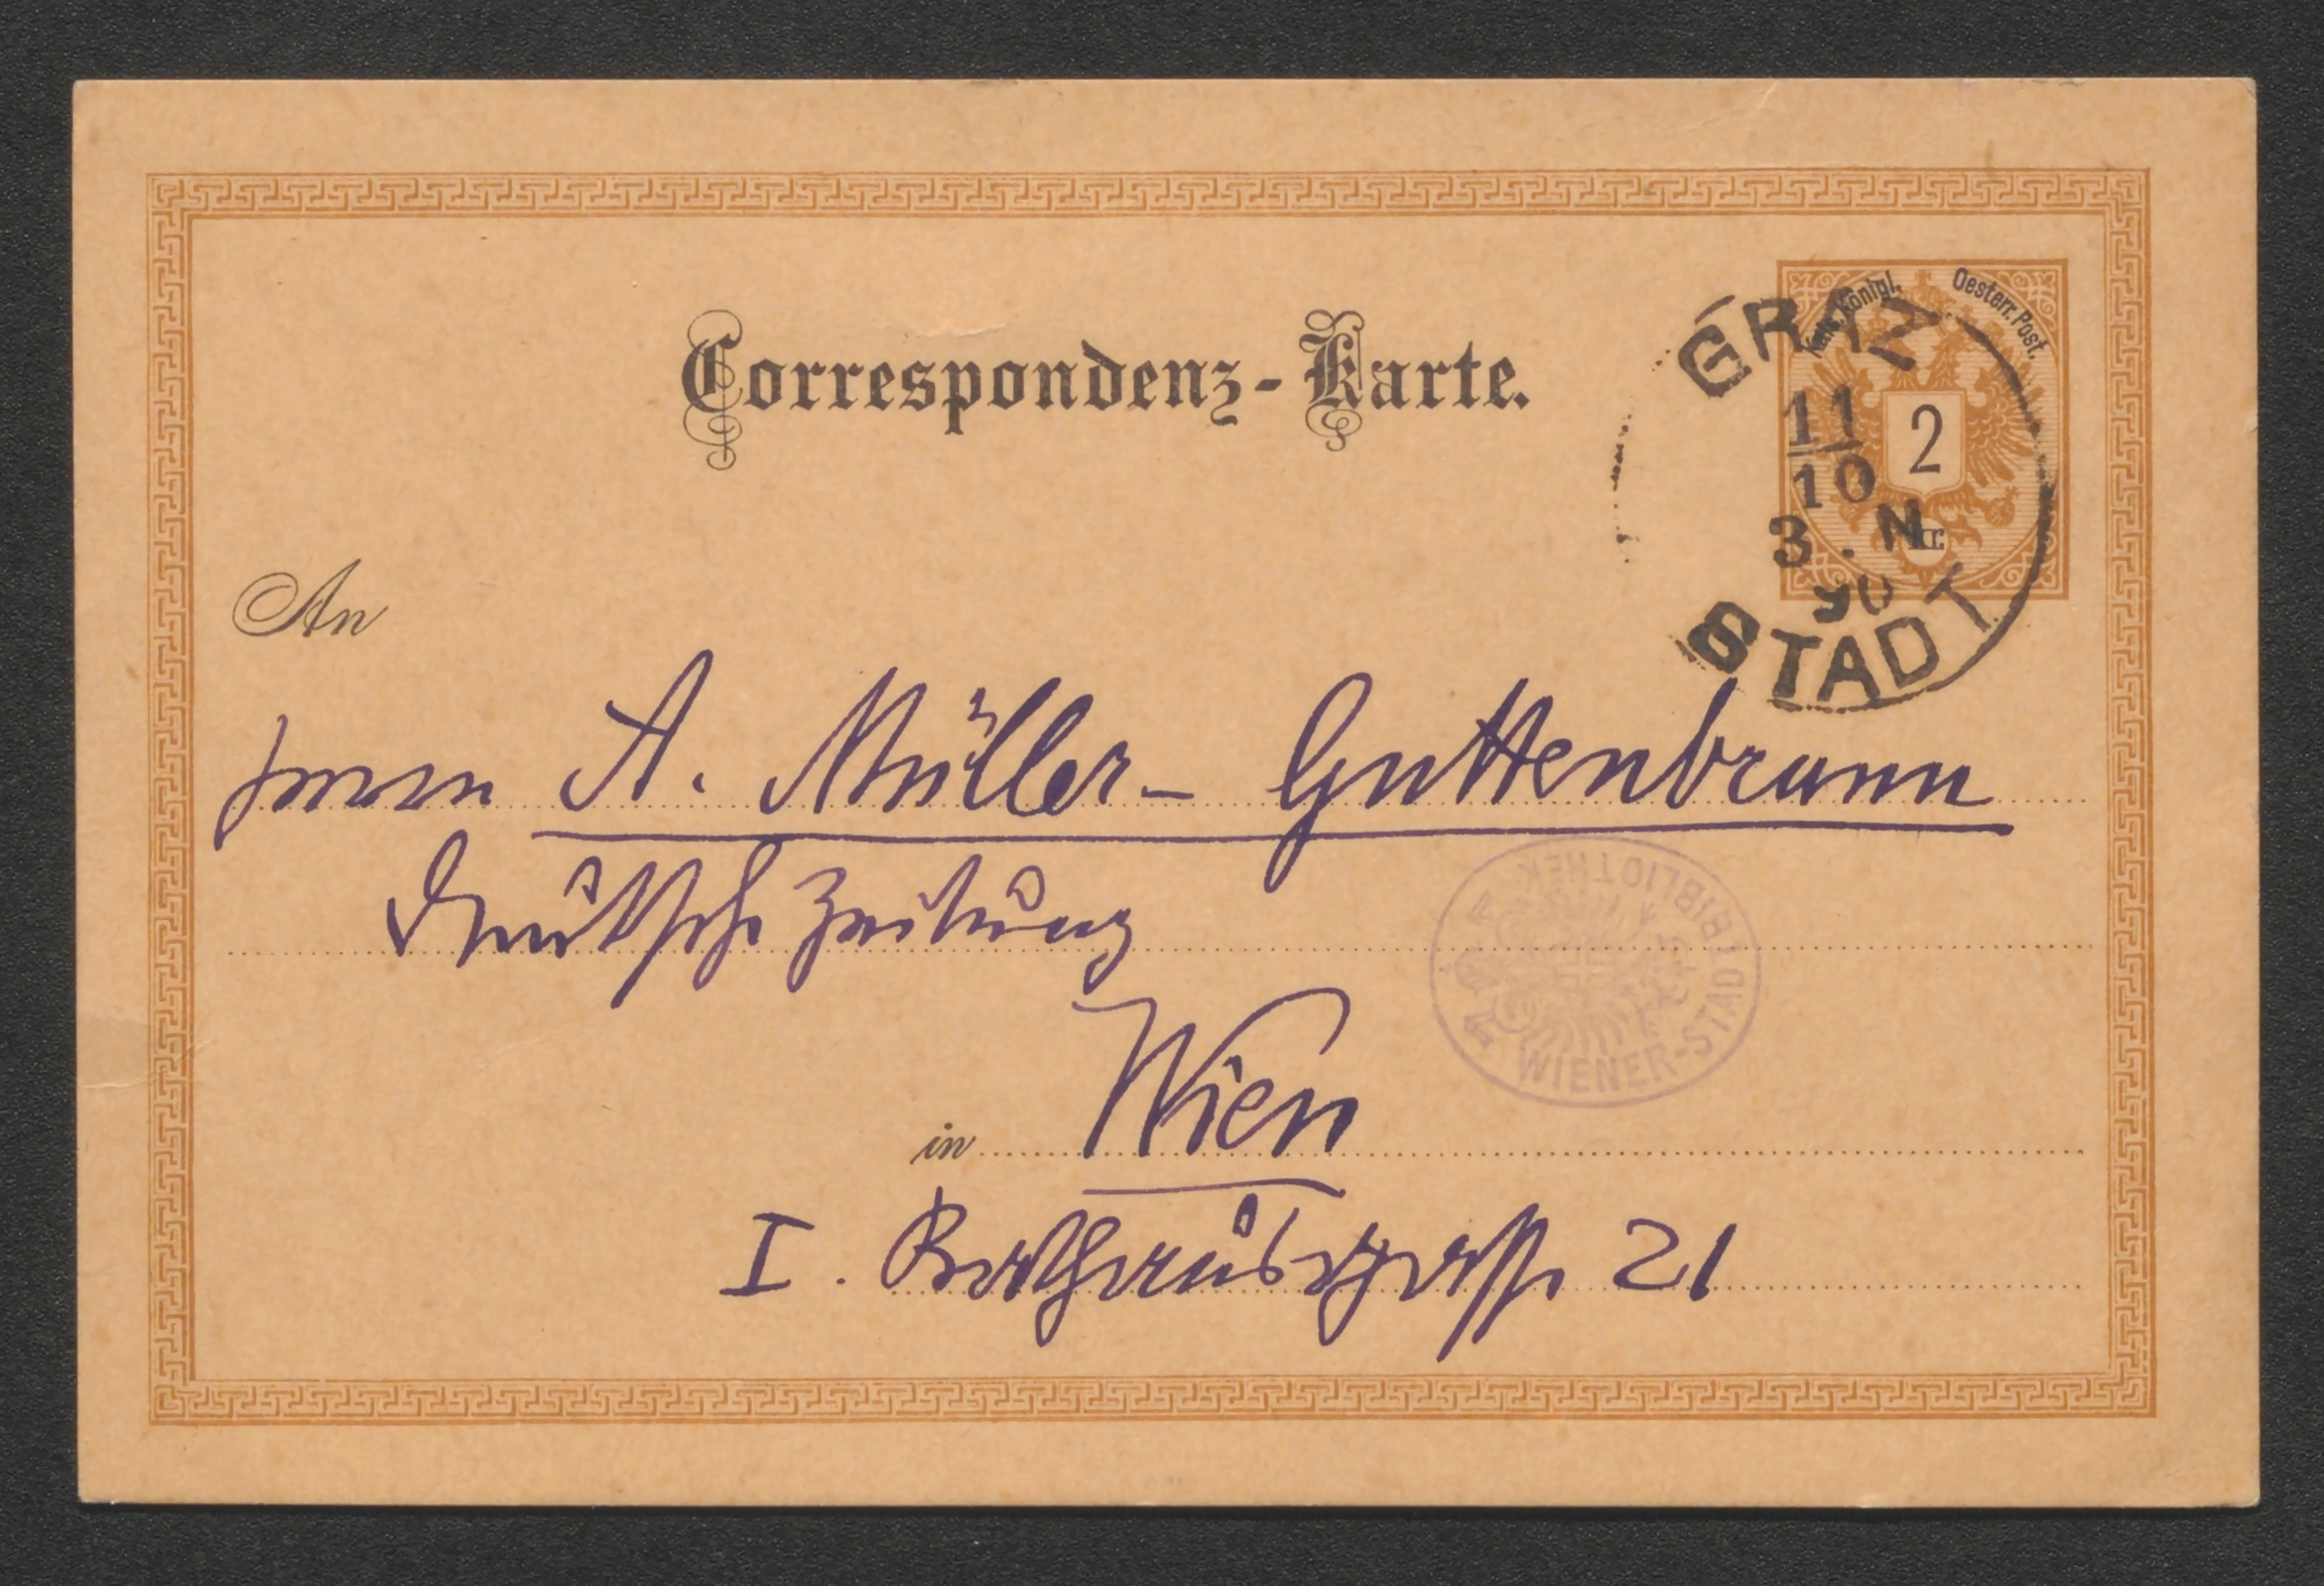 Correspondenz-Karte.
Kais. Königl. Oesterr. Post.
2
kr.
GRAZ
11
10
3. N
90
STADT
An
Herrn A. Müller-Guttenbrunn
Deutsche Zeitung
WIENER-STADTBIBLIOTHEK
in Wien
I. Rathausgasse 21